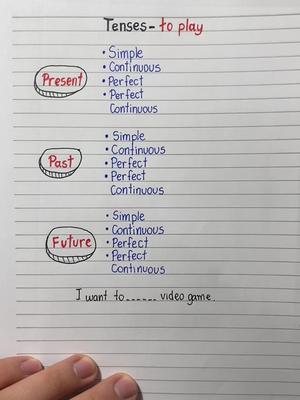 Tenses - to play
Present
• Simple
• Continuous
• Perfect
• Perfect
Continuous
Past
• Simple
• Continuous
• Perfect
• Perfect
Continuous
Future
• Simple
• Continuous
• Perfect
• Perfect
Continuous
I want to ______ video game.